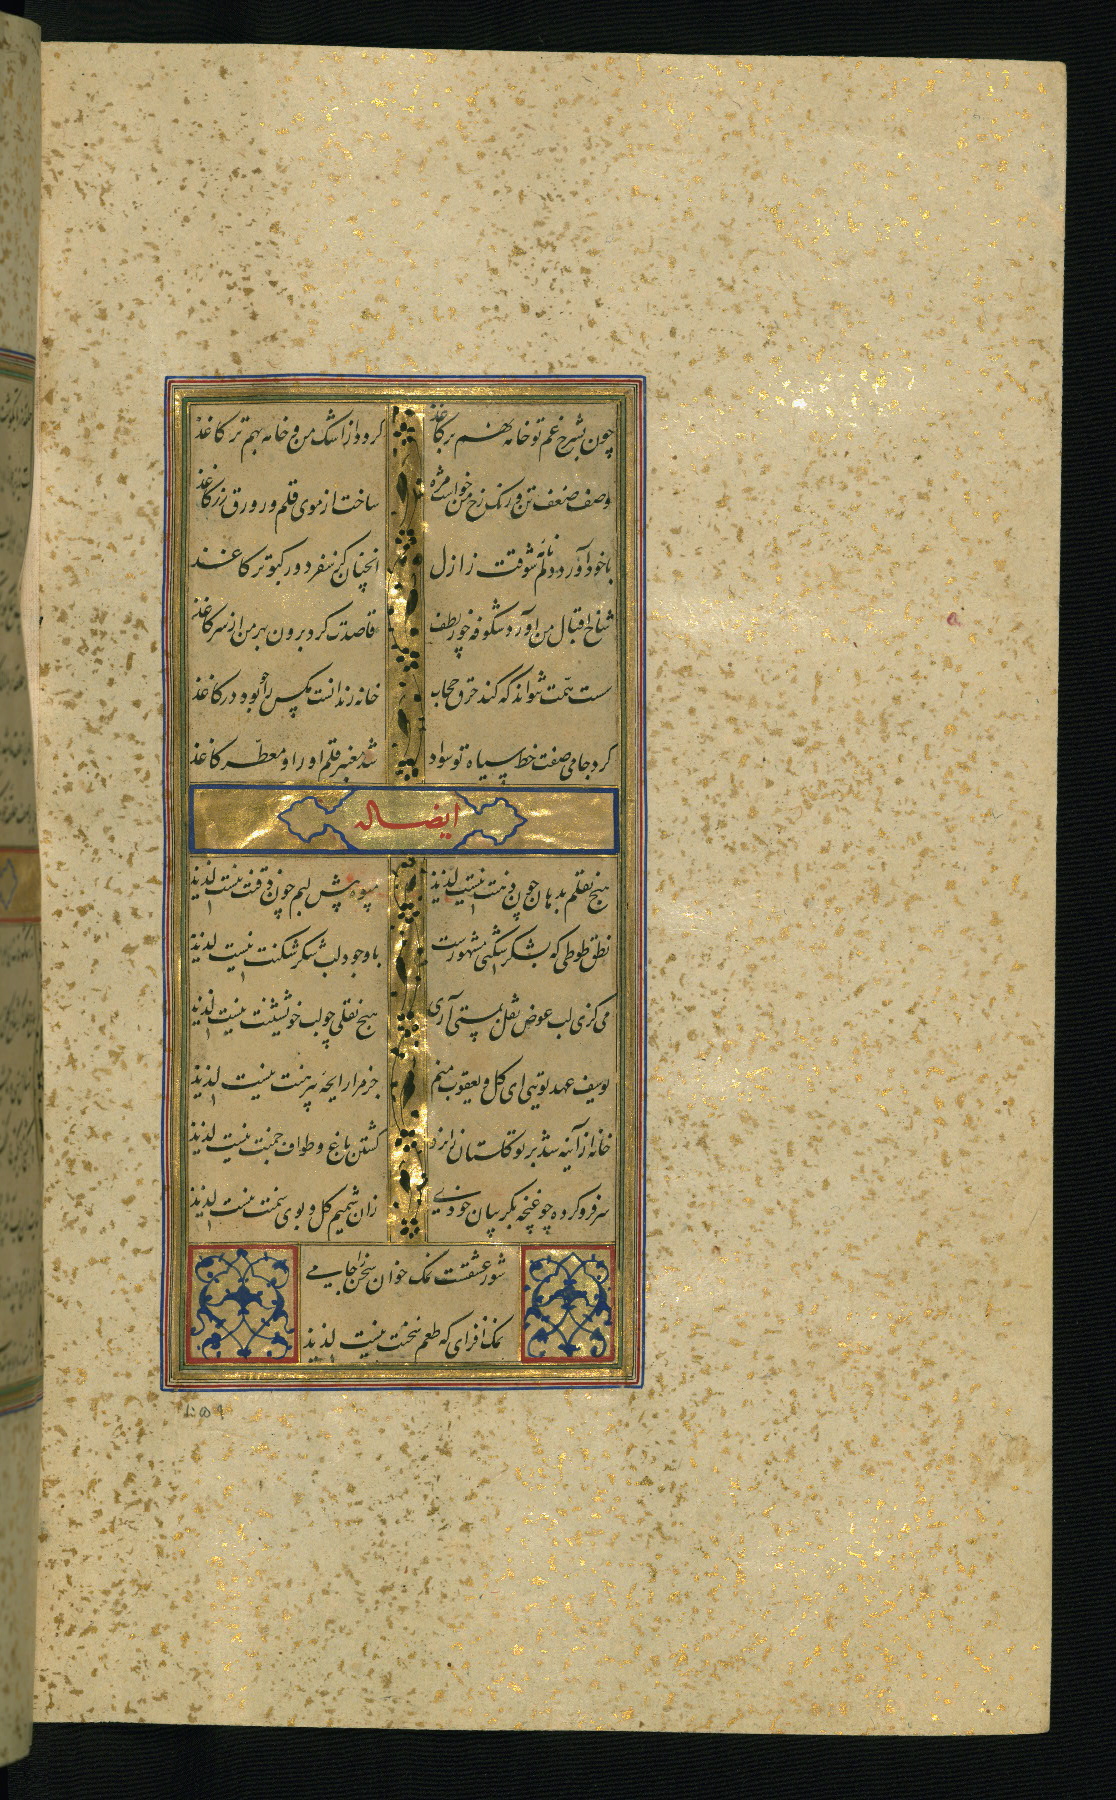 چون بشرح غم تو خامه نهم بر کاغذ
گردد از اشک من و خامه بهم تر کاغذ
وصف ضعف تن و رنگ رخ من خواست مژه
ساخت از موی قلم ور ورق زر کاغذ
با خود آورد دلم نامه شوقت ز ازل
انچنان کز سفر دور کبوتر کاغذ
شاخ اقبال من آورد شکوفه چو ز لطف
قاصدت کرد برون بهر من از سر کاغذ
ست همت نتواند که کند خرق حجاب
خانه زندانست مگس را چو بود در کاغذ
کرد جامی صفت خط سیاه تو سواد
شد معنبر قلم او را و معطر کاغذ
ایضا له
هیچ نقلم بدهان چون دهنت نیست لذیذ
میوه پیش لبم چون ذقنت نیست لذیذ
نطق طوطی که بشکر شکنی مشهورست
با وجود لب شکر شکنت نیست لذیذ
می گزی لب عوض نقل بمستی آری
هیچ نقلی چو لب خویشتنت نیست لذیذ
یوسف عهد تویی ای گل و یعقوب منم
جز مرا رایحه پیرهنت نیست لذیذ
خانه از آینه شد بر تو گلستان ز ان رو
گشتن باغ و طواف چمنت نیست لذیذ
سر فرو کرده چو غنچه بگریبان خودی
زان شمیم گل و بوی سمنت نیست لذیذ
شور عشقست نمک خوان سخن را جامی
نمک افزای که طعم سخنت نیست لذیذ